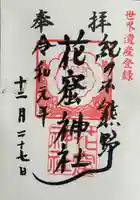 世界遺産登録
奉拝
紀の国熊野
花窟神社
令和元年
十二月二十七日